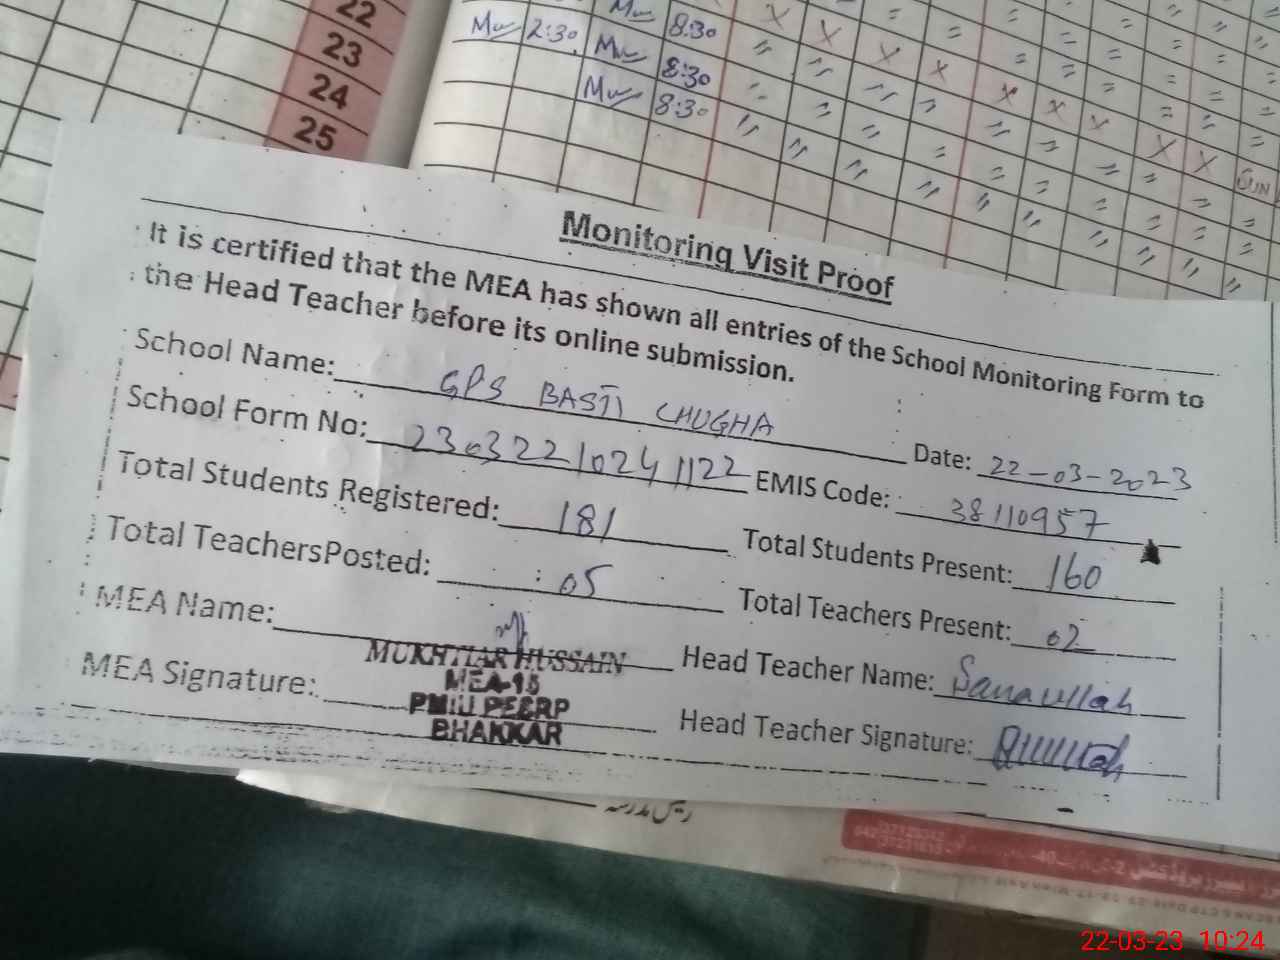 22
23
24
25
8:30
2:30
8:30
8:30
SUN
Monitoring Visit Proof
It is certified that the MEA has shown all entries of the School Monitoring Form to
the Head Teacher before its online submission.
School Name: GPS BASTI CHUGHA Date: 22-03-2023
School Form No: 23032210241122 EMIS Code: 38110957
Total Students Registered: 181 Total Students Present: 160
Total TeachersPosted: 05 Total Teachers Present: 02
MEA Name: MUKHTIAR HUSSAIN Head Teacher Name: Sanaullah
MEA-15
MEA Signature: PMIU PEERP Head Teacher Signature:
BHAKKAR
22-03-23 10:24